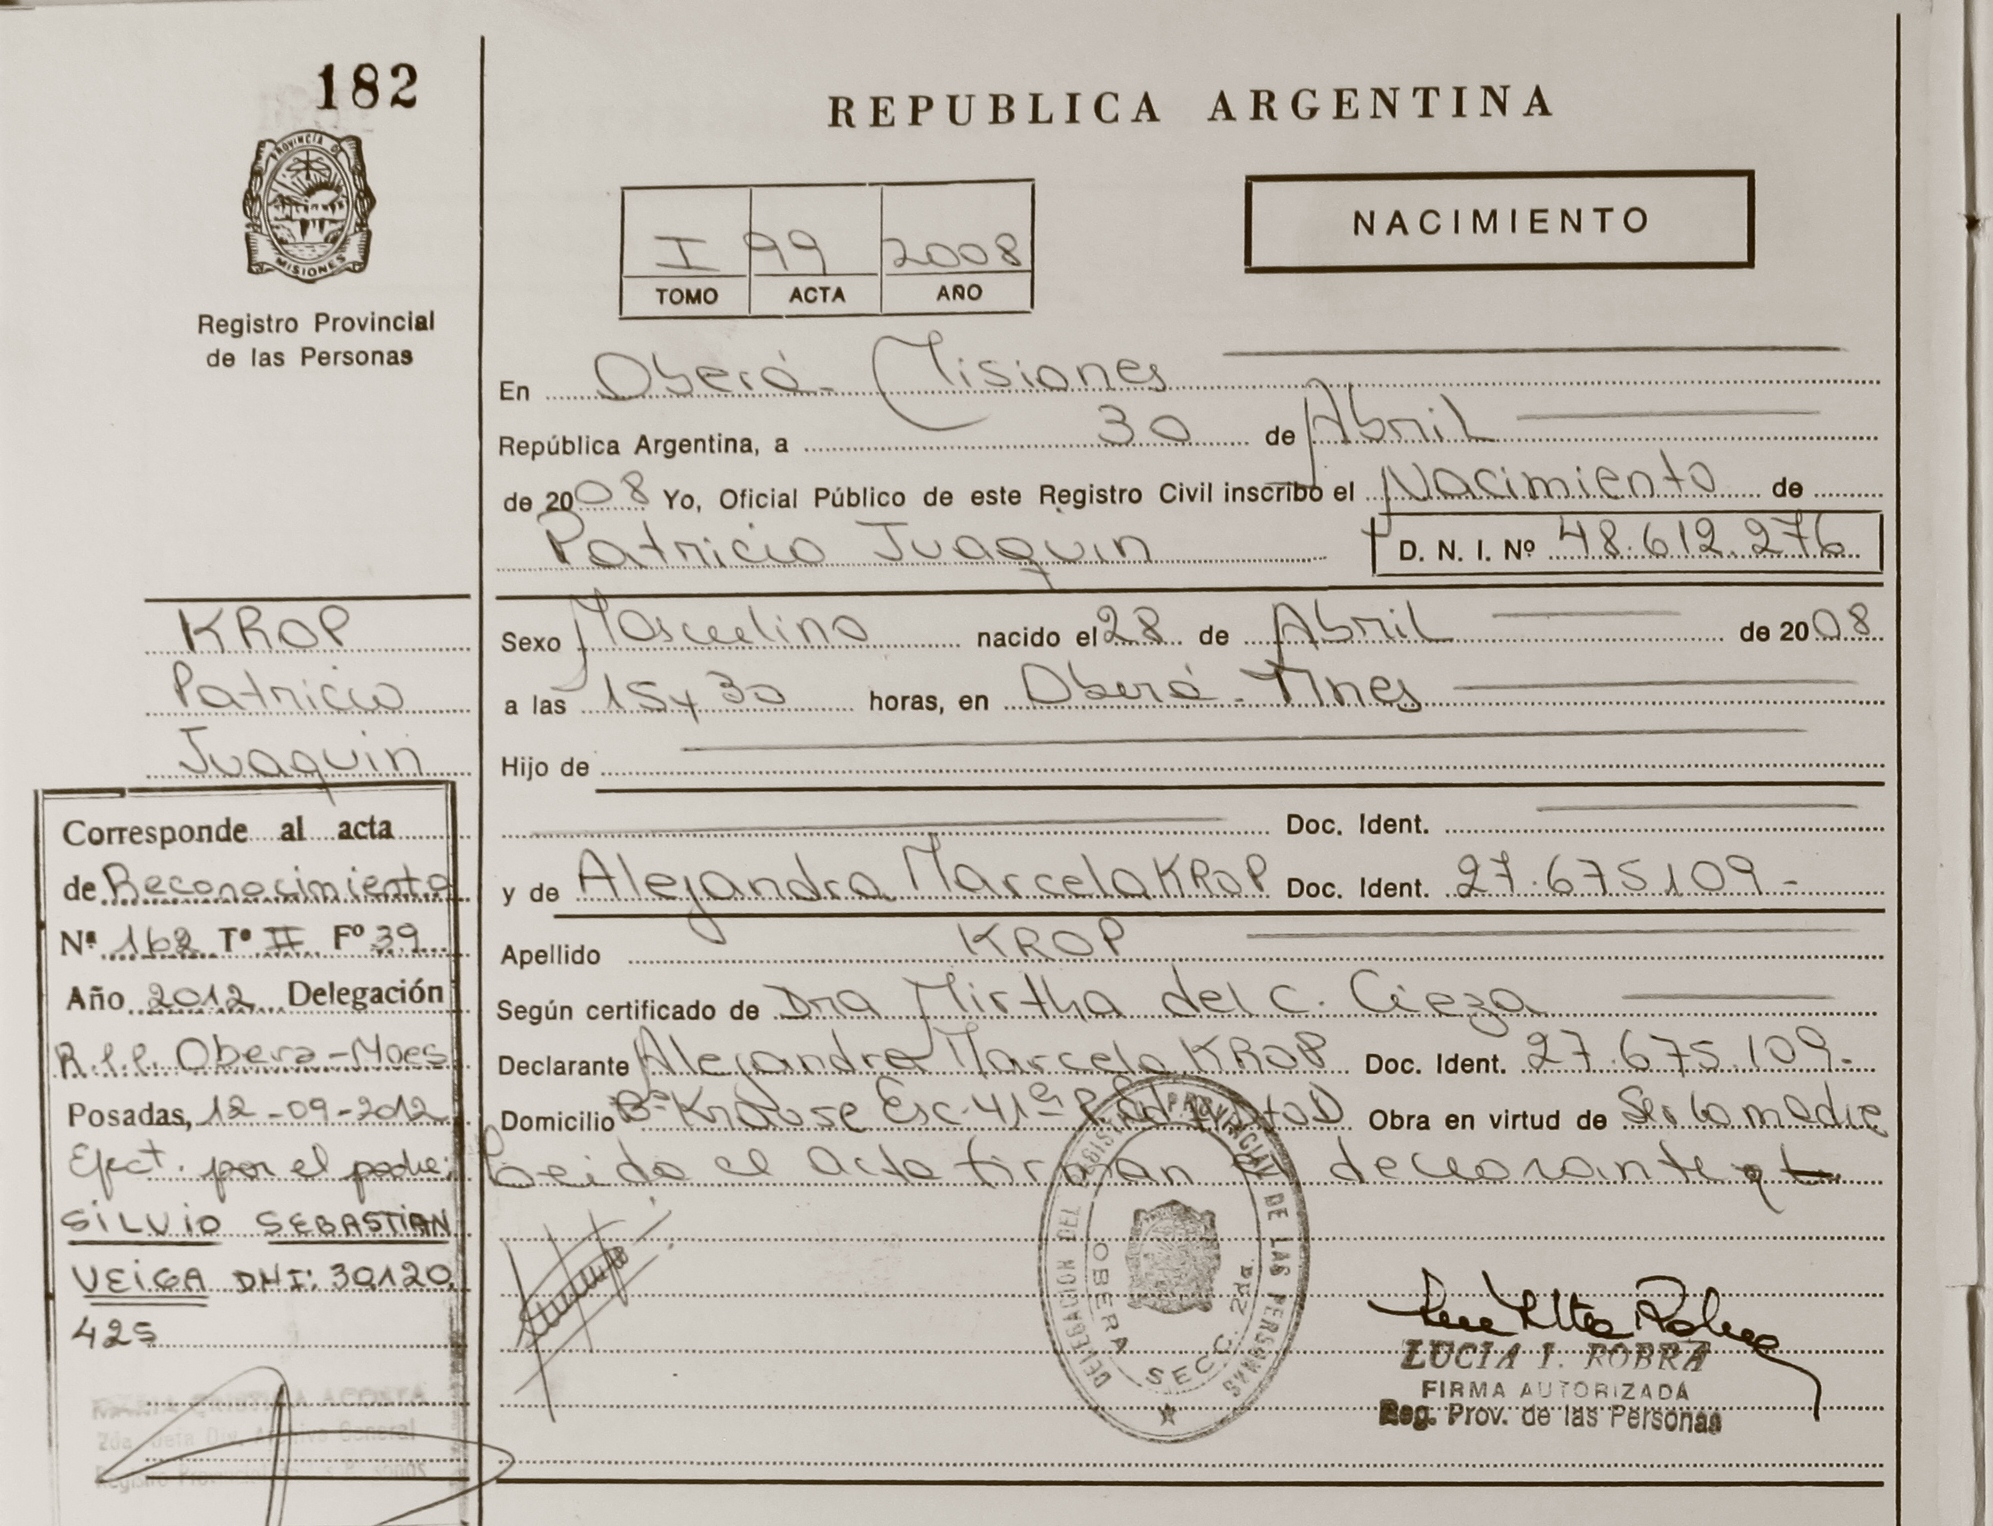 182
PROVINCIA DE
MISIONES
Registro Provincial
de las Personas
REPUBLICA ARGENTINA
NACIMIENTO
I 99 2008
TOMO ACTA AÑO
En Oberá - Misiones
República Argentina, a 30 de Abril
de 2008 Yo, Oficial Público de este Registro Civil inscribo el Nacimiento de
Patricio Juaquin D. N. I. Nº 48.612.276
KROP
Patricio
Juaquin
Sexo Masculino nacido el 28 de Abril de 2008
a las 15 y 30 horas, en Oberá - Mnes
Hijo de
Doc. Ident.
y de Alejandra Marcela KROP Doc. Ident. 27.675.109-
Apellido KROP
Según certificado de Dra Mirtha del C. Cieza
Declarante Alejandra Marcela KROP Doc. Ident. 27.675.109-
Domicilio Bº Krause Esc. 41 Obra en virtud de Ser la madre
Leida el Acta firman el declarante
Corresponde al acta
de Reconocimiento
Nª 162 Tº II Fº 39
Año 2012 Delegación
Obera - Mnes
Posadas, 12-09-2012
Efect. por el padre:
SILVIO SEBASTIAN
VEIGA DNI: 30.120.
425
DELEGACION DEL REGISTRO PROVINCIAL DE LAS PERSONAS
OBERA SECC. 2da.
LUCIA I. ROBRA
FIRMA AUTORIZADA
Reg. Prov. de las Personas
CRISTINA ACOSTA
2da. Jefa Div. Archivo General